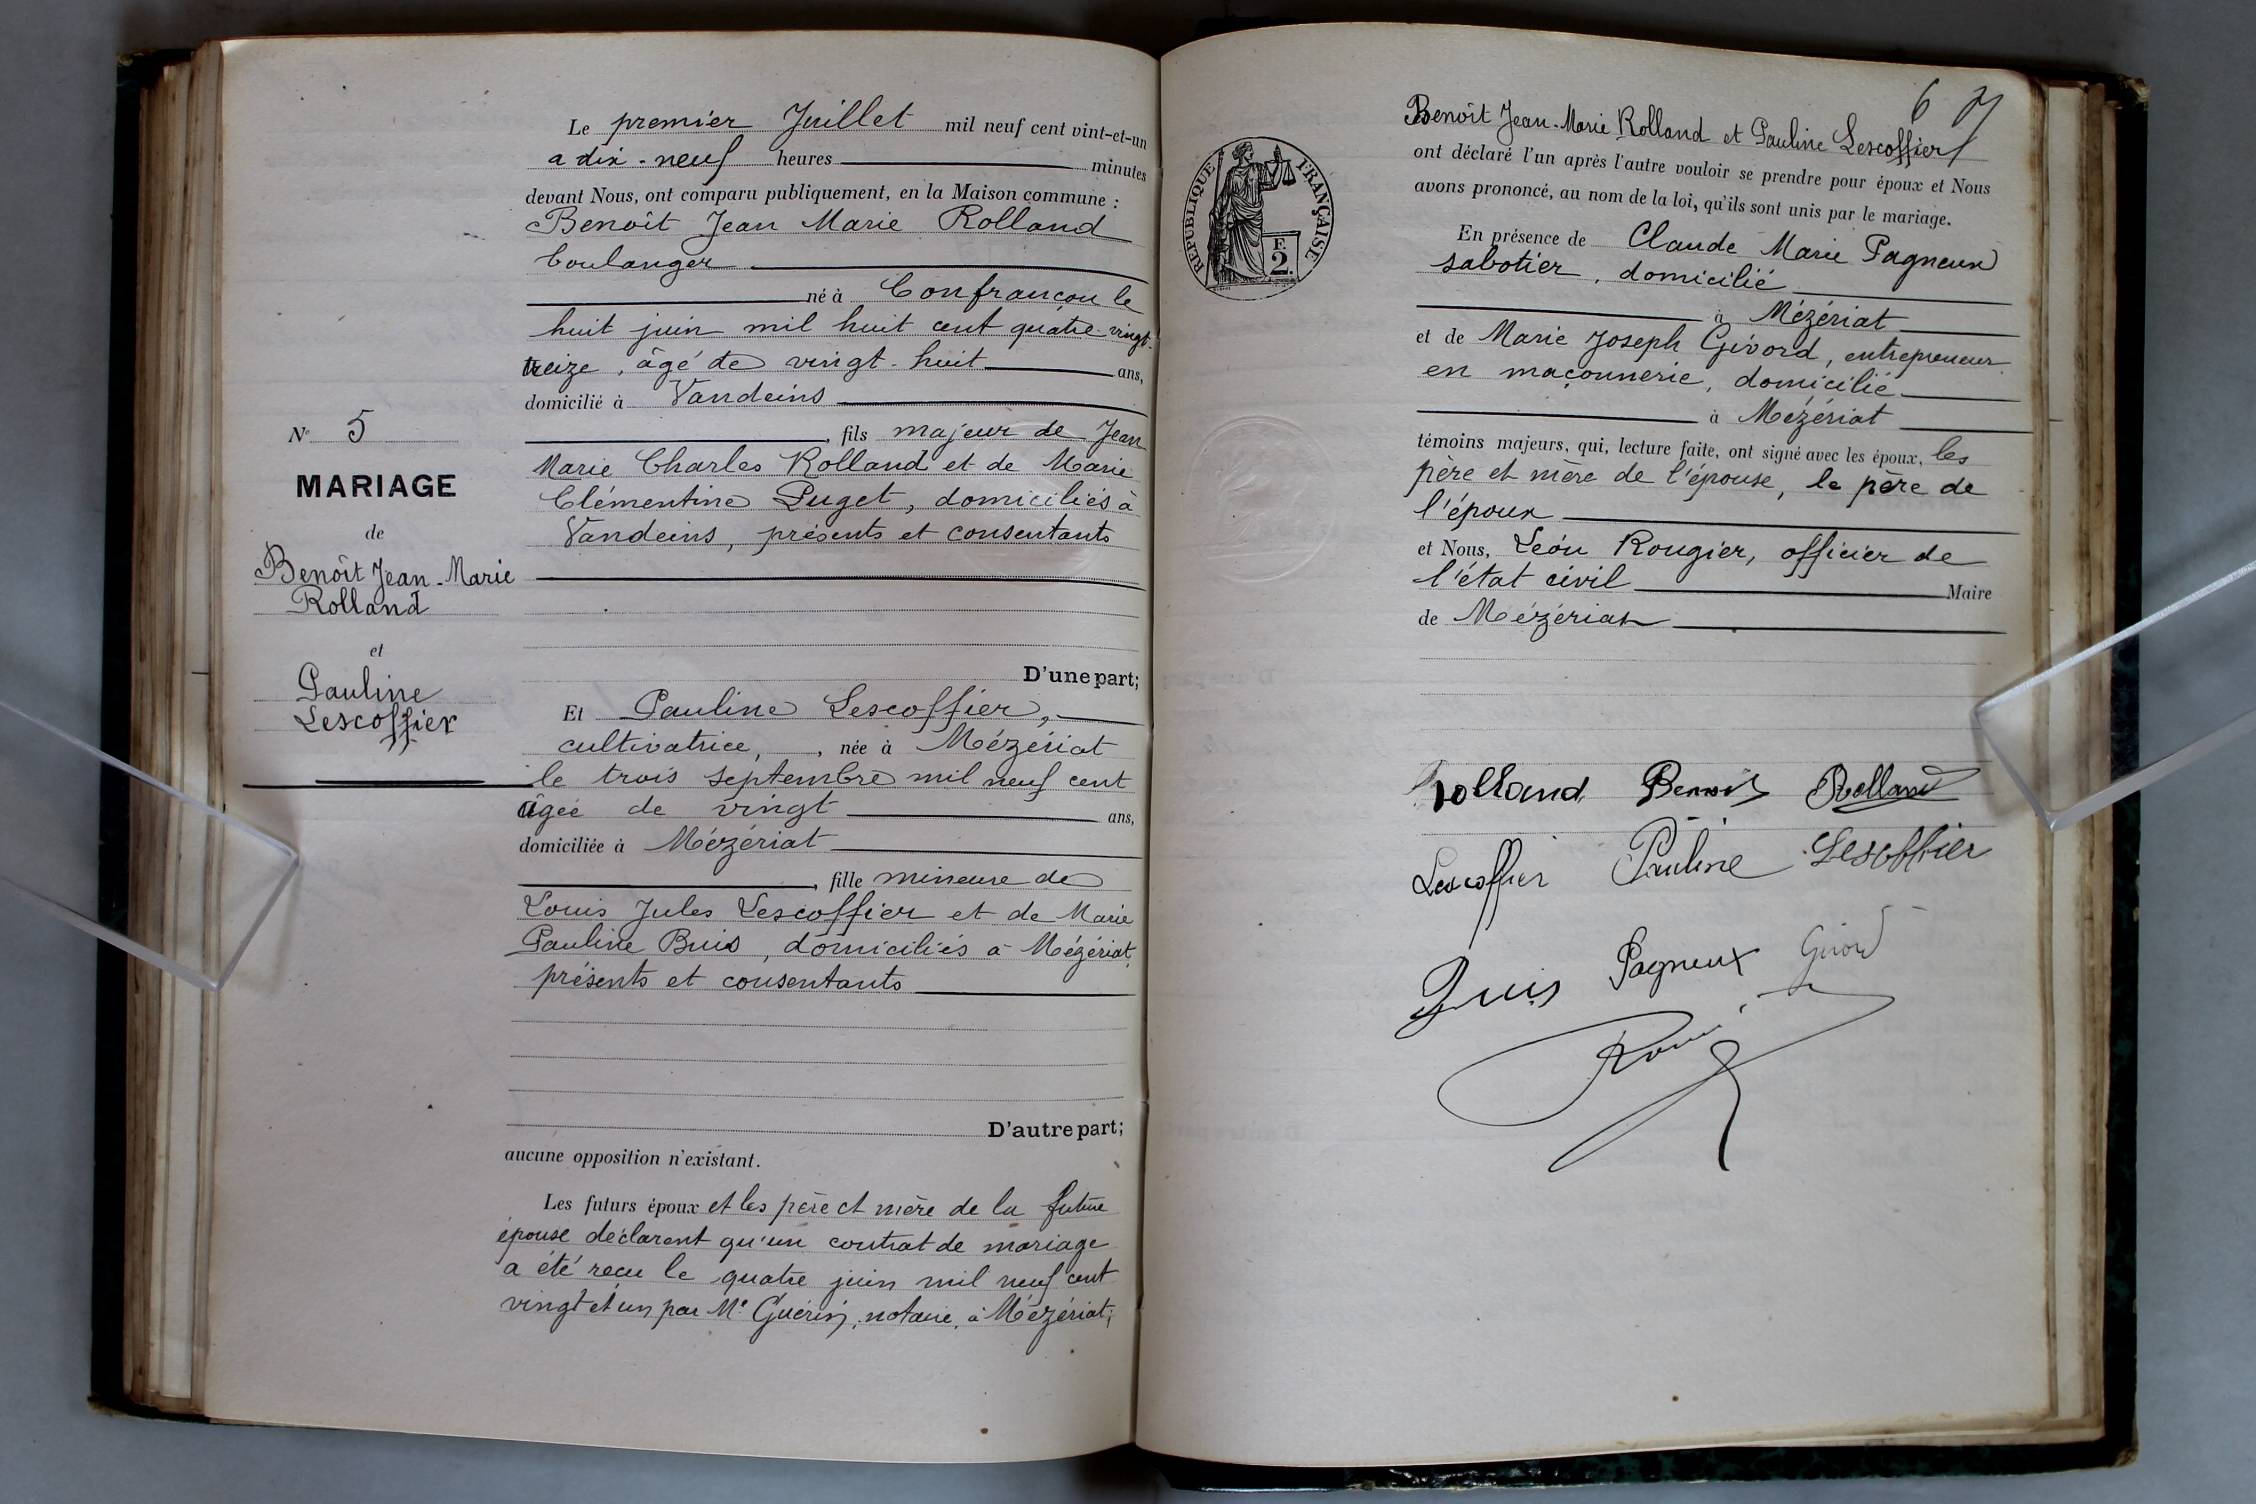 Le premier Juillet mil neuf cent vint-et-un
a dix-neuf heures minutes
devant Nous, ont comparu publiquement, en la Maison commune :
Benoît Jean Marie Rolland
boulanger
né à Confrançon le
huit juin mil huit cent quatre-vingt-
treize, âgé de vingt-huit ans,
domicilié à Vandeins
, fils majeur de Jean
Marie Charles Rolland et de Marie
Clémentine Puget, domiciliés à
Vandeins, présents et consentants
D'une part;
Et Pauline Lescoffier,
cultivatrice, , née à Mézériat
le trois septembre mil neuf cent
âgée de vingt ans,
domiciliée à Mézériat
, fille mineure de
Louis Jules Lescoffier et de Marie
Pauline Buis, domiciliés à Mézériat,
présents et consentants
D'autre part;
aucune opposition n'existant.
Les futurs époux et les père et mère de la future
épouse déclarent qu'un contrat de mariage
a été reçu le quatre juin mil neuf cent
vingt et un par Me Guérin, notaire, à Mézériat;
N° 5
MARIAGE
de
Benoît Jean-Marie
Rolland
et
Pauline
Lescoffier
6
Benoît Jean-Marie Rolland et Pauline Lescoffier
ont déclaré l'un après l'autre vouloir se prendre pour époux et Nous
avons prononcé, au nom de la loi, qu'ils sont unis par le mariage.
En présence de Claude Marie Pagneux
sabotier, domicilié
à Mézériat
et de Marie Joseph Givord, entrepreneur
en maçonnerie, domicilié
à Mézériat
témoins majeurs, qui, lecture faite, ont signé avec les époux, les
père et mère de l'épouse, le père de
l'époux
et Nous, Léon Rougier, officier de
l'état civil Maire
de Mézériat
RÉPUBLIQUE FRANÇAISE
F.
2.
Rolland Benoit Rolland
Lescoffier Pauline Lescoffier
Buis Pagneux Givord